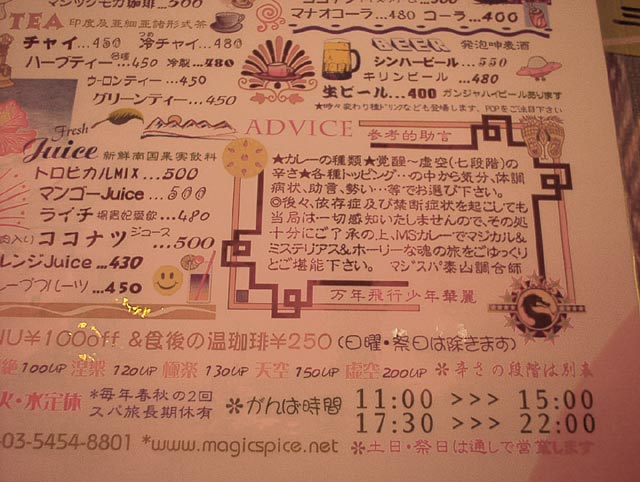 マジックモカ珈琲…
マナオコーラ…480 コーラ…400
TEA 印度及亜細亜諸形式茶
チャイ…450 冷チャイ…480
ハーブティー…450 冷製…480
ウーロンティー…450
グリーンティー…450
BEER 発泡呻麦酒
シンハービール…550
キリンビール …480
生ビール…400 ガンジャハイビールあります
★時々変わり種ドリンクなども登場します。POPをご注目下さい
Fresh
Juice 新鮮南国果実飲料
トロピカルMIX…500
マンゴーJuice …500
ライチ 楊貴妃愛飲…480
肉入り ココナツ ジュース …500
レンジJuice …430
ルーツ …450
ADVICE 参考的助言
★カレーの種類★覚醒～虚空(七段階)の
辛さ★各種トッピング…の中から気分、体調
病状、助言、勢い…等でお選び下さい。
◎後々、依存症及び禁断症状を起こしても
当局は一切感知いたしませんので、その処
十分にご了承の上、MSカレーでマジカル&
ミステリアス&ホーリーな魂の旅をごゆっくり
とご堪能下さい。 マジスパ泰山調合師
万年飛行少年華麗
NU¥100off &食後の温珈琲¥250 (日曜・祭日は除きます)
絶100UP 涅槃 120UP 極楽 130UP 天空 150UP 虚空 200UP ✻辛さの段階は別表
火・水定休 *毎年春秋の2回
スパ旅長期休有
✻がんば時間 11:00 >>> 15:00
17:30 >>> 22:00
-03-5454-8801 *www.magicspice.net ✻土日・祭日は通しで営業します